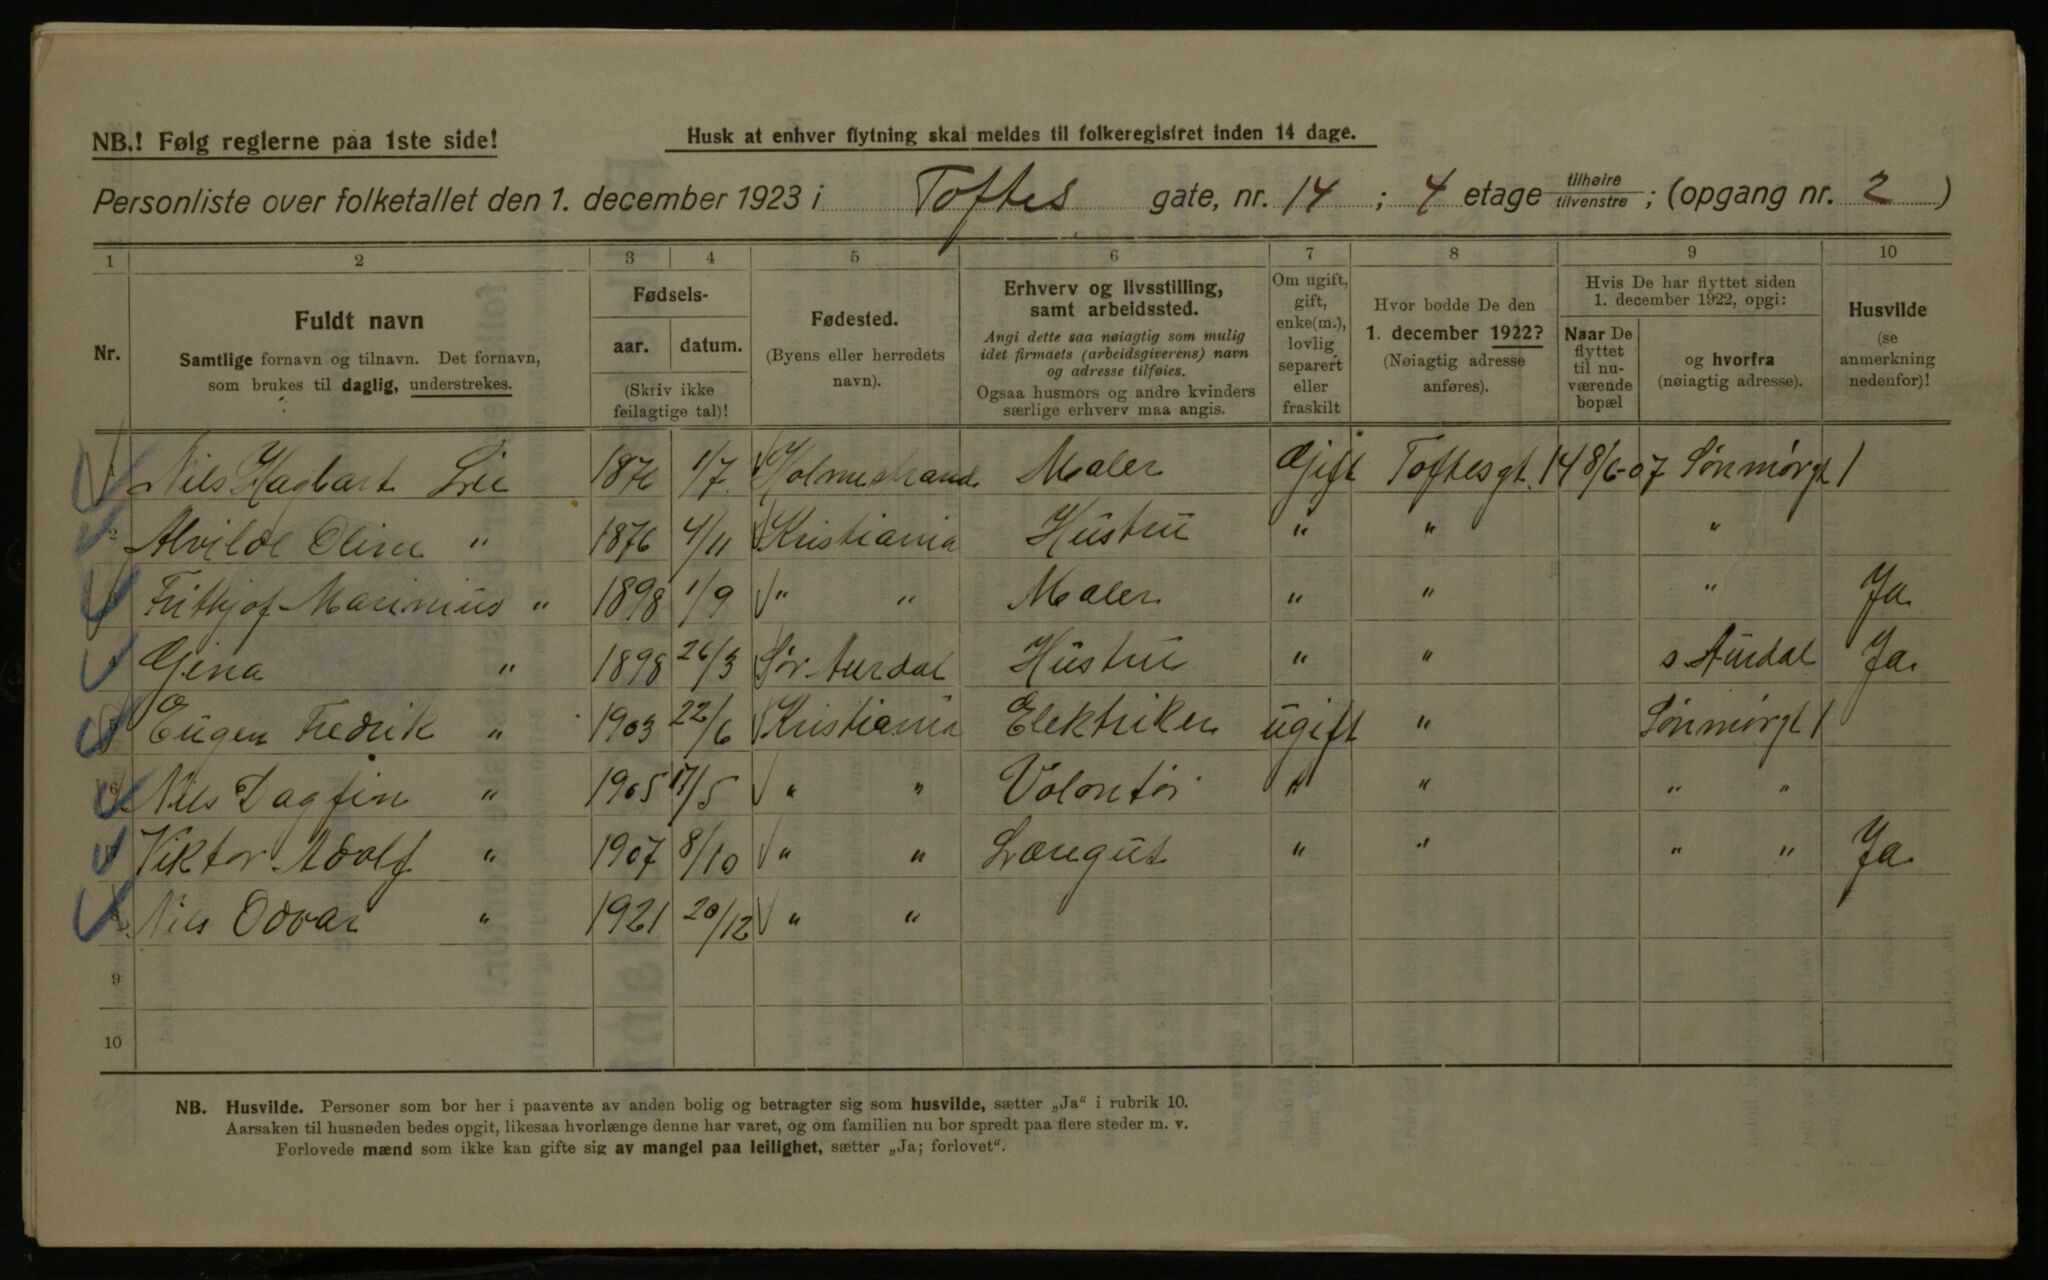 NB.! Følg reglerne paa 1ste side!
Husk at enhver flytning skal meldes til folkeregistret inden 14 dage.
Personliste over folketallet den 1. december 1923 i Toftes gate, nr. 14 ; 4 etage tilhøire tilvenstre ; (opgang nr. 2 )
1 2 3 4 5 6 7 8 9 10
Nr.
Fuldt navn
Samtlige fornavn og tilnavn. Det fornavn,
som brukes til daglig, understrekes.
Fødsels-
aar. datum.
(Skriv ikke
feilagtige tal)!
Fødested.
(Byens eller herredets
navn).
Erhverv og livsstilling,
samt arbeidssted.
Angi dette saa nøiagtig som mulig
idet firmaets (arbeidsgiverens) navn
og adresse tilføies.
Ogsaa husmors og andre kvinders
særlige erhverv maa angis.
Om ugift,
gift,
enke(m.),
lovlig
separert
eller
fraskilt
Hvor bodde De den
1. december 1922?
(Nøiagtig adresse
anføres).
Hvis De har flyttet siden
1. december 1922, opgi:
Naar De
flyttet
til nu-
værende
bopæl
og hvorfra
(nøiagtig adresse).
Husvilde
(se
anmerkning
nedenfor)!
Nils Hagbart Lie 1876 1/7 Holmestrand Maler Gift Toftesgt. 14 8/6-07 Sønmørgt 1
2 Alvilde Oline " 1876 4/11 Kristiania Hustru " " "
Frithjof Marinius " 1898 1/9 " " Maler " " " Ja
Gina " 1898 26/3 Sør Aurdal Hustru " " s Aurdal Ja.
5 Eugen Fredrik " 1903 22/6 Kristiania Elektriker ugift " Sønmørgt 1
6 Nils Dagfin " 1905 17/5 " " Volontør " " " "
Viktor Adolf " 1907 8/10 " " Læregut " " " " Ja.
Nils Odvar " 1921 20/12 " "
9
10
NB. Husvilde. Personer som bor her i paavente av anden bolig og betragter sig som husvilde, sætter „Ja“ i rubrik 10.
Aarsaken til husnøden bedes opgit, likesaa hvorlænge denne har varet, og om familien nu bor spredt paa flere steder m. v.
Forlovede mænd som ikke kan gifte sig av mangel paa leilighet, sætter „Ja; forlovet“.